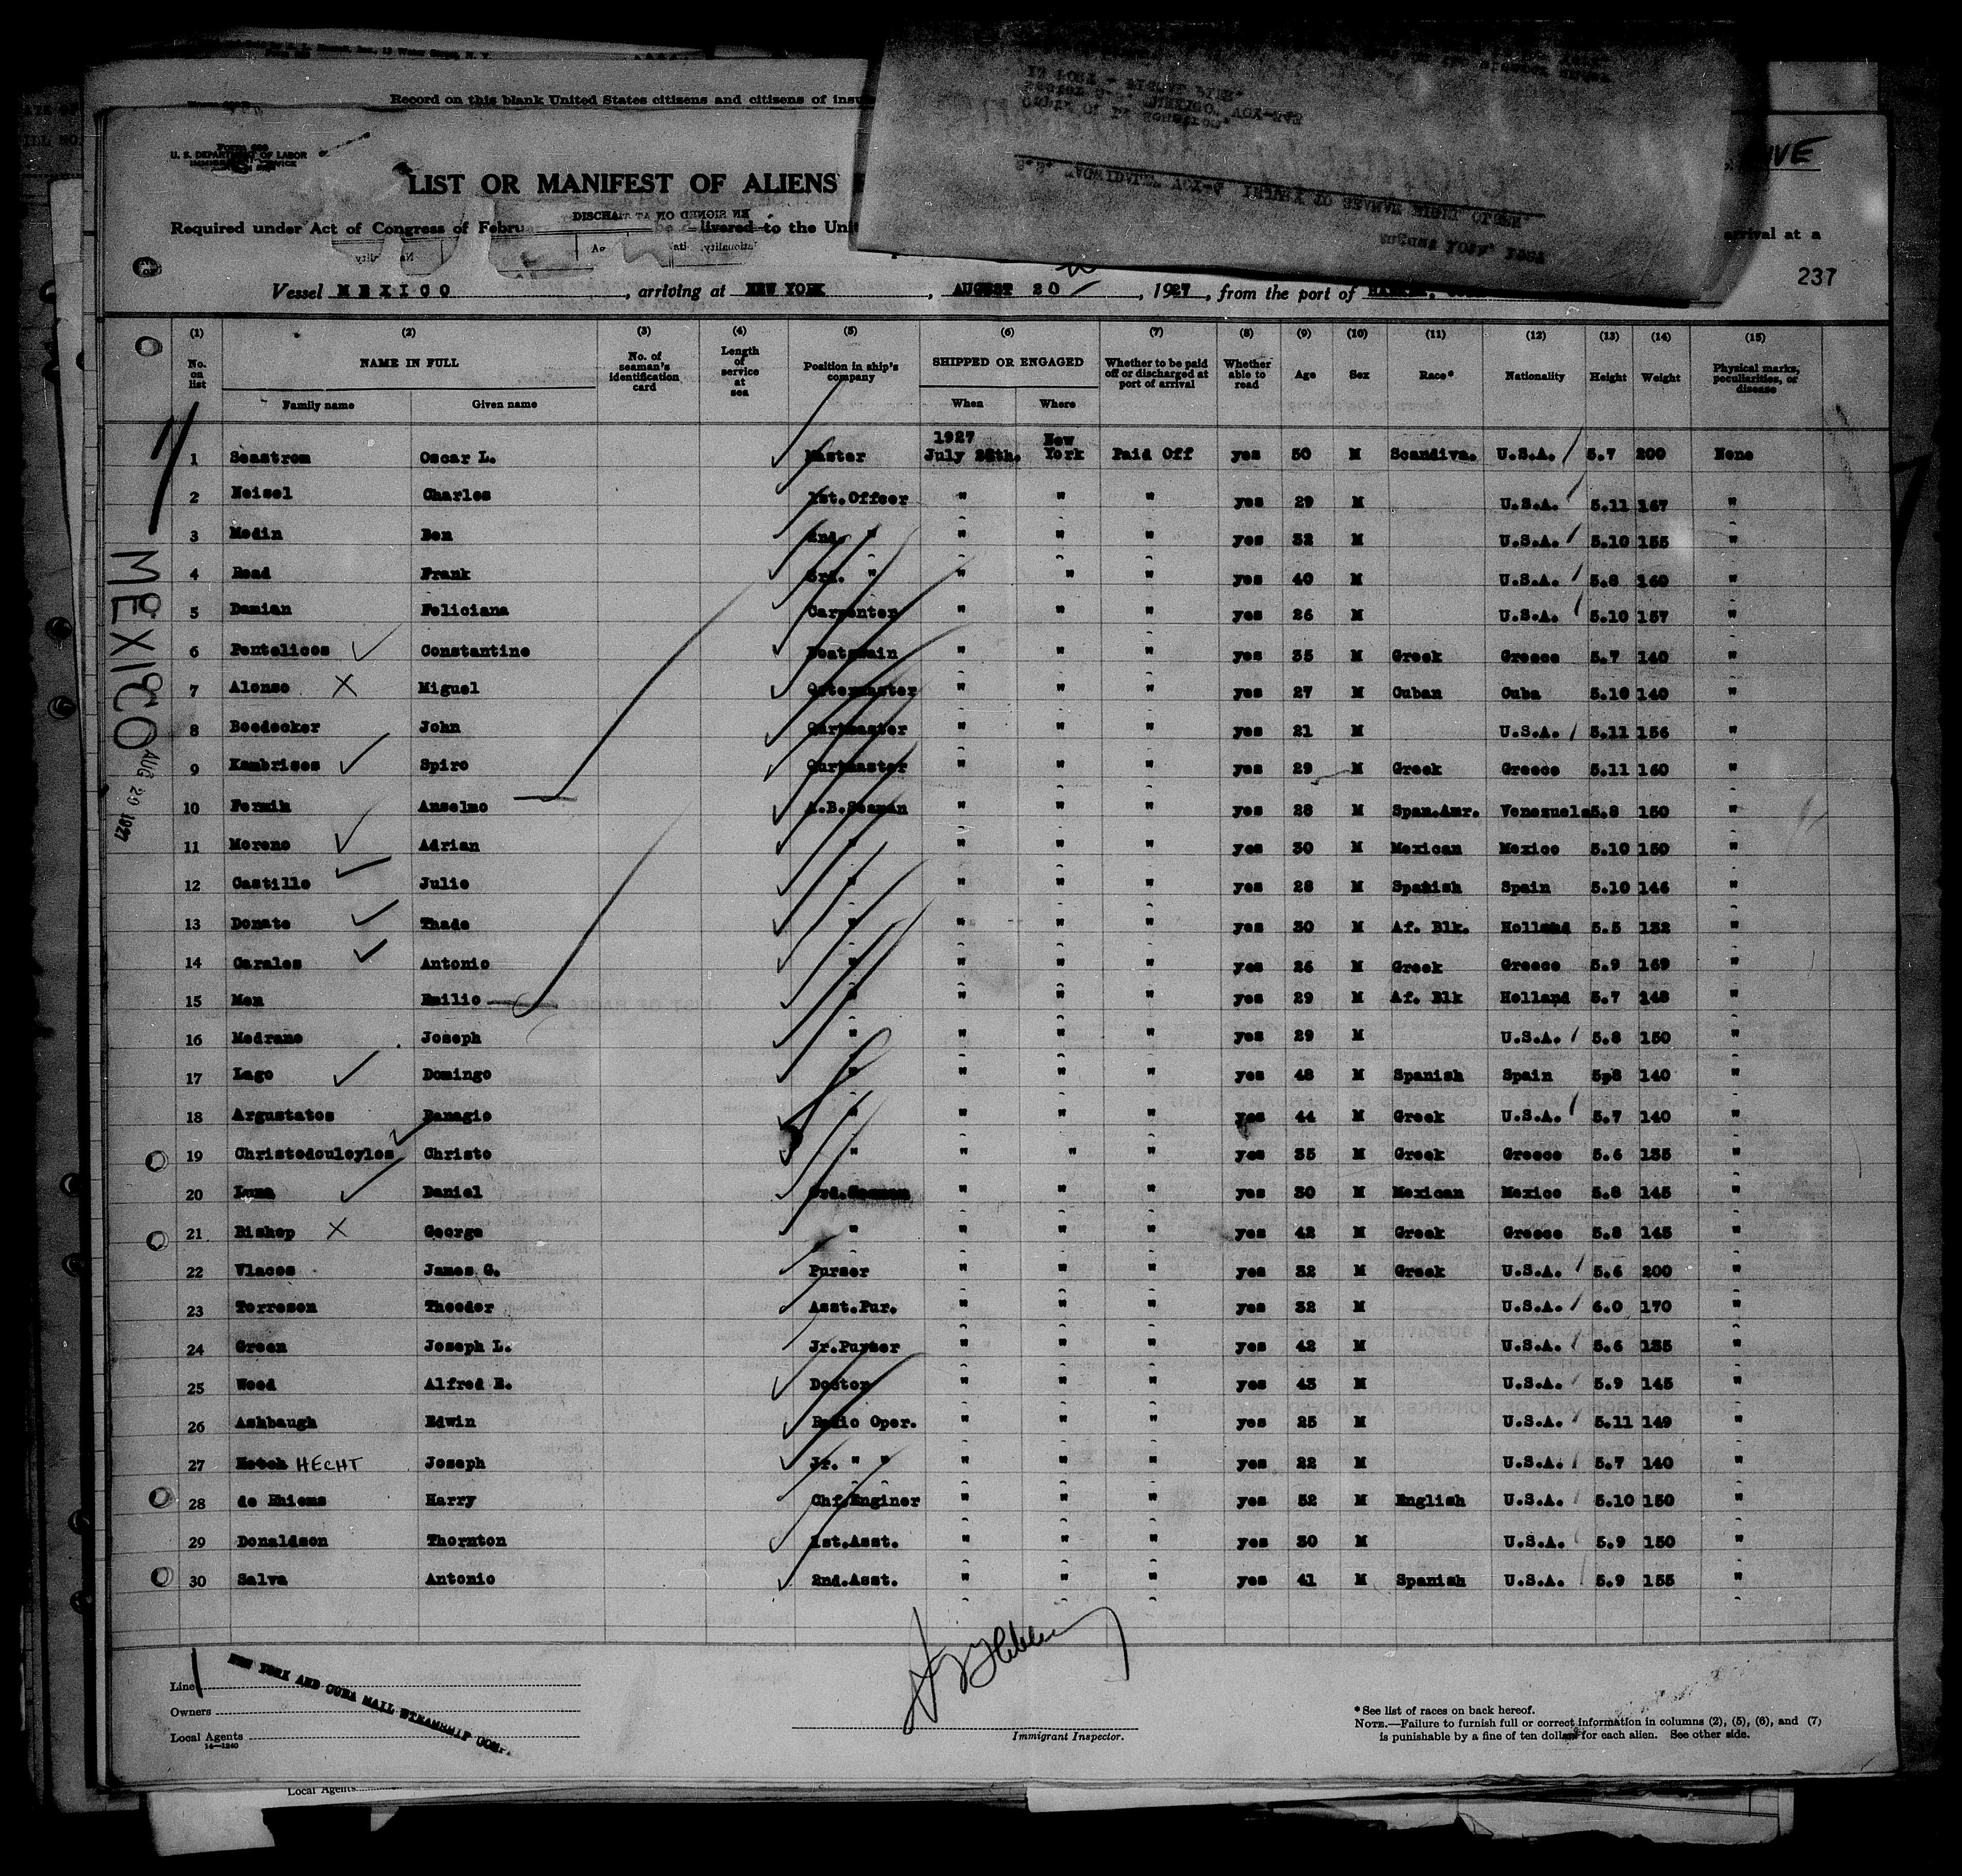 Record on this blank United States citizens and citizens of insu
U. S. DEPARTMENT OF LABOR
LIST OR MANIFEST OF ALIENS
Required under Act of Congress of Febru be delivered to the Uni arrival at a
237
Vessel MEXICO, arriving at NEW YORK, AUGUST 20, 1927, from the port of
(1) (2) (3) (4) (5) (6) (7) (8) (9) (10) (11) (12) (13) (14) (15)
No. on list NAME IN FULL No. of seaman's identification card Length of service at sea Position in ship's company SHIPPED OR ENGAGED Whether to be paid off or discharged at port of arrival Whether able to read Age Sex Race* Nationality Height Weight Physical marks, peculiarities, or disease
Family name Given name When Where
1 Seastrom Oscar L. Master 1927 July New York Paid Off yes 50 M Scandiva. U.S.A. 5.7 200 None
2 Neisel Charles 1st.Offcer " " " yes 29 M U.S.A. 5.11 167 "
3 Modin Ben 2nd. " " " " yes 32 M U.S.A. 5.10 155 "
4 Read Frank 3rd. " " " " yes 40 M U.S.A. 5.8 160 "
5 Damian Feliciana Carpenter " " " yes 26 M U.S.A. 5.10 157 "
6 Pentelicos Constantine Boatswain " " " yes 35 M Greek Greece 5.7 140 "
7 Alonso Miguel " " " yes 27 M Cuban Cuba 5.10 140 "
8 Boedecker John Qurtmaster " " " yes 21 M U.S.A. 5.11 156 "
9 Kambrises Spiro Qurtmaster " " " yes 29 M Greek Greece 5.11 160 "
10 Fermin Anselmo A.B.Seaman " " " yes 28 M Span.Amr. Venezuela 5.8 150 "
11 Moreno Adrian " " " " yes 30 M Mexican Mexico 5.10 150 "
12 Castillo Julio " " " " yes 28 M Spanish Spain 5.10 146 "
13 Donato Thade " " " " yes 30 M Af. Blk. Holland 5.5 132 "
14 Carales Antonio " " " " yes 26 M Greek Greece 5.9 169 "
15 Men Emilio " " " " yes 29 M Af. Blk Holland 5.7 148 "
16 Medrano Joseph " " " " yes 29 M U.S.A. 5.8 150 "
17 Lago Domingo " " " " yes 48 M Spanish Spain 5p8 140 "
18 Argustatos Panagio " " " " yes 44 M Greek U.S.A. 5.7 140 "
19 Christodouloylos Christo " " " " yes 35 M Greek Greece 5.6 135 "
20 Luna Daniel Ord.Seaman " " " yes 30 M Mexican Mexico 5.8 145 "
21 Bishop George " " " " yes 42 M Greek Greece 5.8 145 "
22 Vlacos James G. Purser " " " yes 32 M Greek U.S.A. 5.6 200 "
23 Torreson Theodor Asst.Pur. " " " yes 32 M U.S.A. 6.0 170 "
24 Green Joseph L. Jr.Purser " " " yes 42 M U.S.A. 5.6 135 "
25 Wood Alfred E. Doctor " " " yes 43 M U.S.A. 5.9 145 "
26 Ashbaugh Edwin Radio Oper. " " " yes 25 M U.S.A. 5.11 149 "
27 HECHT Joseph Jr. " " " " " yes 22 M U.S.A. 5.7 140 "
28 de Rhiems Harry Chf.Enginer " " " yes 52 M English U.S.A. 5.10 150 "
29 Donaldson Thornton 1st.Asst. " " " yes 30 M U.S.A. 5.9 150 "
30 Salva Antonio 2nd.Asst. " " " yes 41 M Spanish U.S.A. 5.9 155 "
MEXICO
AUG 20 1927
Line
NEW YORK AND CUBA MAIL STEAMSHIP COMP.
Owners
Local Agents
14—1240
Immigrant Inspector.
* See list of races on back hereof.
NOTE.—Failure to furnish full or correct information in columns (2), (5), (6), and (7)
is punishable by a fine of ten dollars for each alien. See other side.
Local Agents